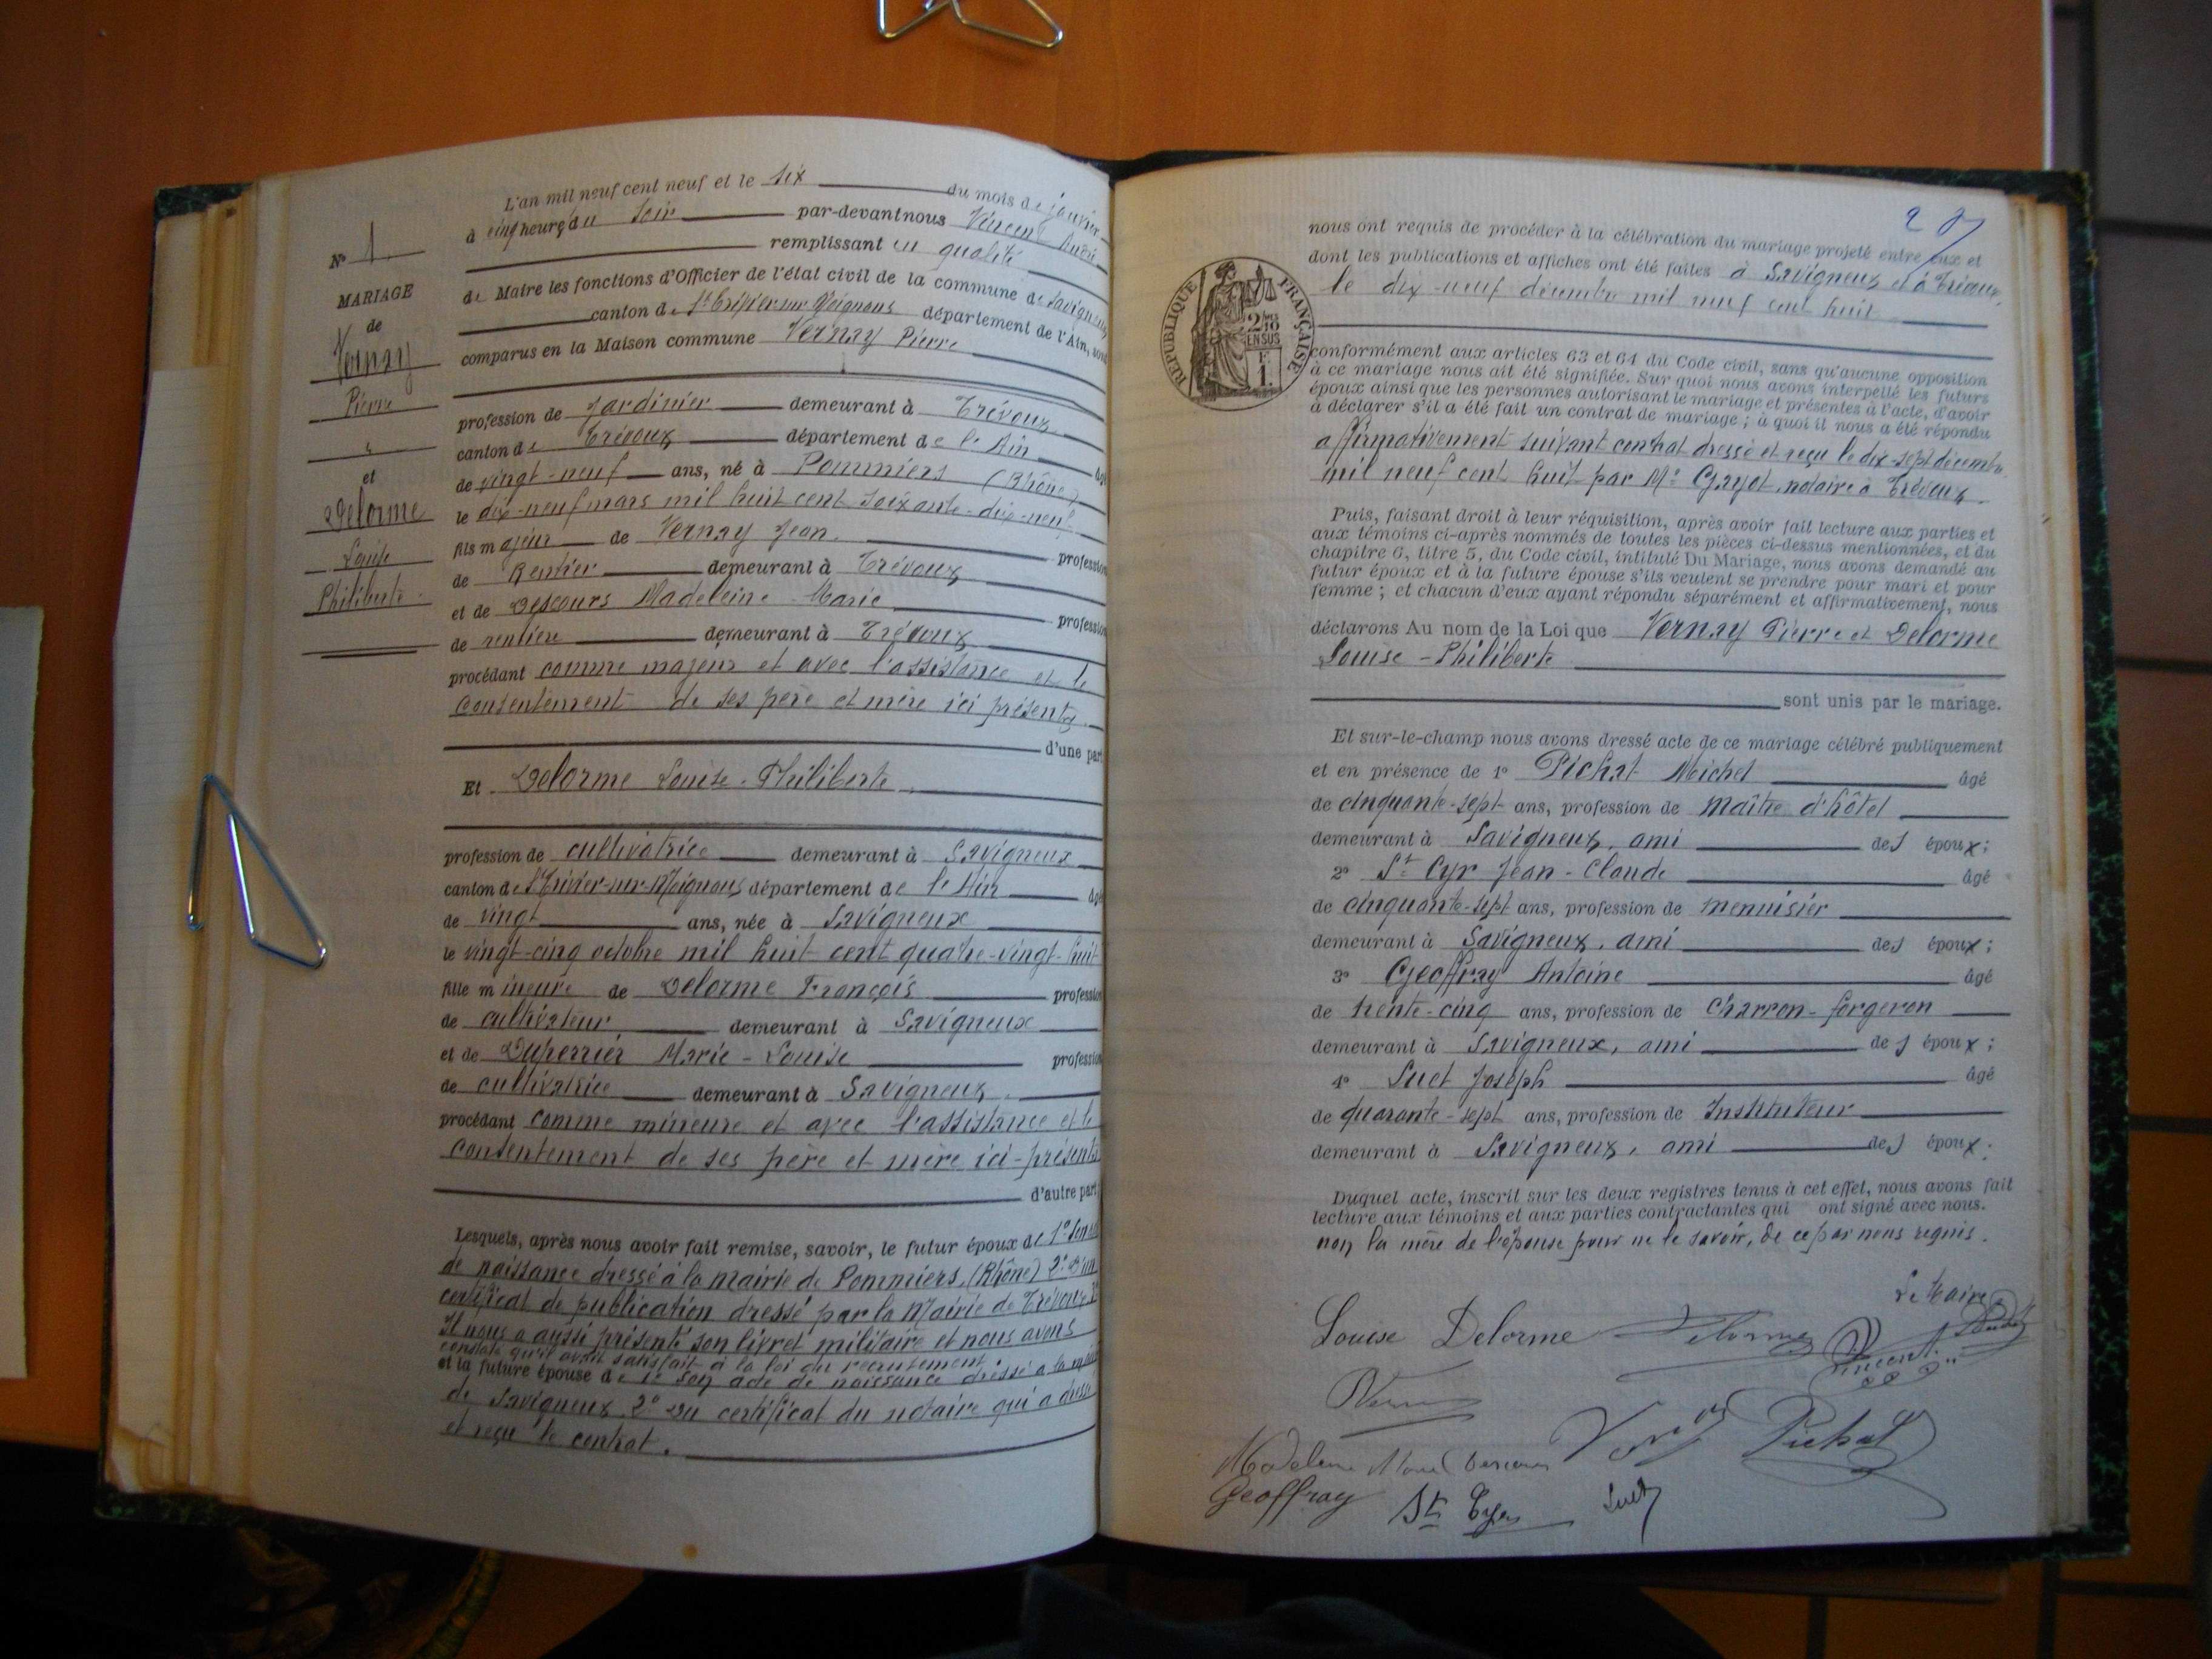 L'an mil neuf cent neuf et le six du mois de janvier
à cinq heures du soir par-devant nous Vincent André
remplissant en qualité
de Maire les fonctions d'Officier de l'état civil de la commune de Savigneux
canton de St Trivier-sur-Moignans département de l'Ain, sont
comparus en la Maison commune Vernay Pierre
profession de Jardinier demeurant à Trévoux
canton de Trévoux département de l'Ain âgé
de vingt-neuf ans, né à Pommiers (Rhône)
le dix-neuf mars mil huit cent soixante-dix-neuf
fils majeur de Vernay Jean. profession
de Rentier demeurant à Trévoux
et de Descours Madeleine-Marie profession
de rentière demeurant à Trévoux
procédant comme majeur et avec l'assistance et le
consentement de ses père et mère ici présents
d'une part
Et Delorme Louise-Philiberte
profession de cultivatrice demeurant à Savigneux
canton de St Trivier-sur-Moignans département de l'Ain âgé
de vingt ans, née à Savigneux
le vingt-cinq octobre mil huit cent quatre-vingt-huit
fille mineure de Delorme François profession
de cultivateur demeurant à Savigneux
et de Duperrier Marie-Louise profession
de cultivatrice demeurant à Savigneux
procédant comme mineure et avec l'assistance et le
consentement de ses père et mère ici-présents
d'autre part
Lesquels, après nous avoir fait remise, savoir, le futur époux de 1º Son acte
de naissance dressé à la mairie de Pommiers (Rhône) 2º D'un
certificat de publication dressé par la Mairie de Trévoux
Il nous a aussi présenté son livret militaire et nous avons
constaté qu'il avait satisfait à la loi du recrutement
et la future épouse de 1º Son acte de naissance dressé à la mairie
de Savigneux 2º Du certificat du notaire qui a dressé
et reçu le contrat.
Nº 1
MARIAGE
de
Vernay
Pierre
et
Delorme
Louise
Philiberte
2
nous ont requis de procéder à la célébration du mariage projeté entre eux et
dont les publications et affiches ont été faites à Savigneux et à Trévoux,
le dix-neuf décembre mil neuf cent huit
RÉPUBLIQUE FRANÇAISE
2/10
EN SUS
F.
1.
conformément aux articles 63 et 64 du Code civil, sans qu'aucune opposition
à ce mariage nous ait été signifiée. Sur quoi nous avons interpellé les futurs
époux ainsi que les personnes autorisant le mariage et présentes à l'acte, d'avoir
à déclarer s'il a été fait un contrat de mariage ; à quoi il nous a été répondu
affirmativement suivant contrat dressé et reçu le dix-sept décembre
mil neuf cent huit par Me Gayot, notaire à Trévoux.
Puis, faisant droit à leur réquisition, après avoir fait lecture aux parties et
aux témoins ci-après nommés de toutes les pièces ci-dessus mentionnées, et du
chapitre 6, titre 5, du Code civil, intitulé Du Mariage, nous avons demandé au
futur époux et à la future épouse s'ils veulent se prendre pour mari et pour
femme ; et chacun d'eux ayant répondu séparément et affirmativement, nous
déclarons Au nom de la Loi que Vernay Pierre et Delorme
Louise-Philiberte
sont unis par le mariage.
Et sur-le-champ nous avons dressé acte de ce mariage célébré publiquement
et en présence de 1º Pichat Michel âgé
de cinquante-sept ans, profession de maître d'hôtel
demeurant à Savigneux, ami des époux ;
2º St Cyr Jean-Claude âgé
de cinquante-sept ans, profession de menuisier
demeurant à Savigneux, ami des époux ;
3º Geoffray Antoine âgé
de trente-cinq ans, profession de charron-forgeron
demeurant à Savigneux, ami des époux ;
4º Suet Joseph âgé
de quarante-sept ans, profession de Instituteur
demeurant à Savigneux, ami des époux.
Duquel acte, inscrit sur les deux registres tenus à cet effet, nous avons fait
lecture aux témoins et aux parties contractantes qui ont signé avec nous.
non la mère de l'épouse pour ne le savoir, de ce par nous requis.
Le Maire
Louise Delorme Delorme Vincent
Madeleine Marie Descours Vernay Pichat
Geoffray St Cyr Suet